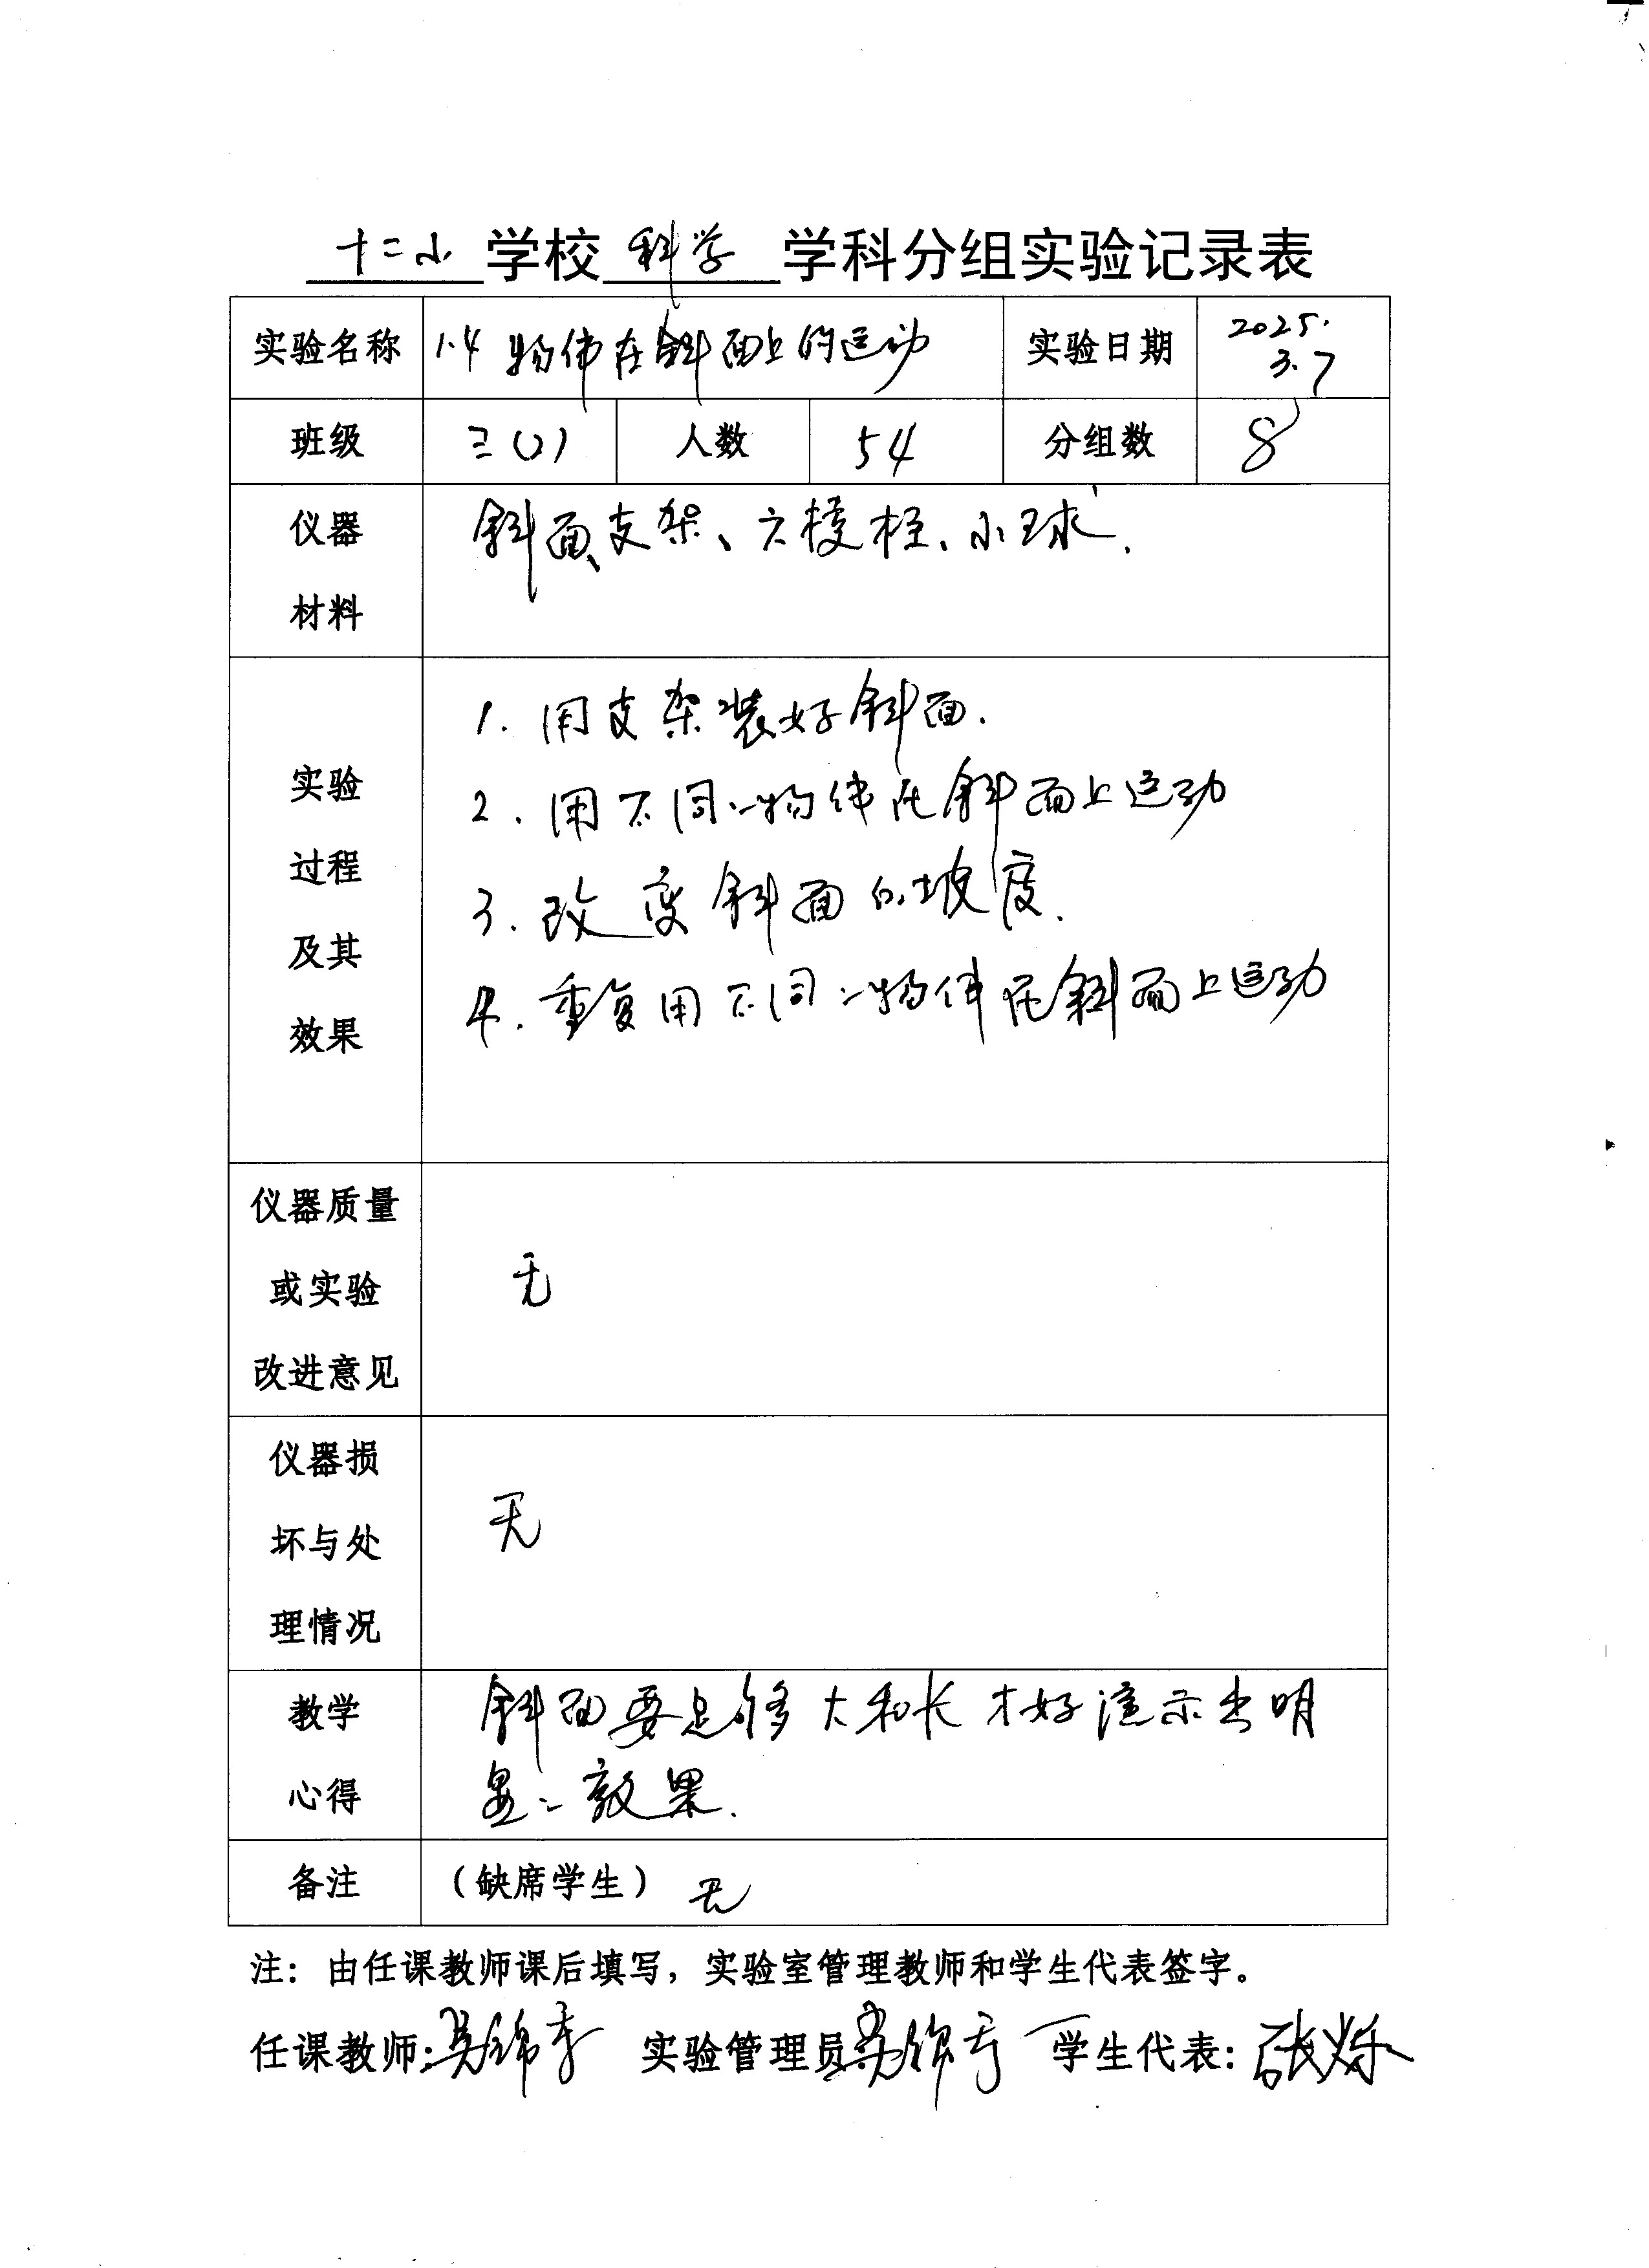 十二小 学校 科学 学科分组实验记录表
实验名称 1.4 物体在斜面上的运动 实验日期 2025.
3.7
班级 三(2) 人数 54 分组数 8
仪器 斜面、支架、六棱柱、小球.
材料
1. 用支架装好斜面.
实验 2. 用不同的物体在斜面上运动
过程 3. 改变斜面的坡度.
及其 4. 重复用不同的物体在斜面上运动
效果
仪器质量
或实验 无
改进意见
仪器损
坏与处 无
理情况
教学 斜面要足够大和长才好演示出明
心得 显的效果.
备注 (缺席学生) 无
注：由任课教师课后填写，实验室管理教师和学生代表签字。
任课教师: 吴锦 实验管理员 吴锦 学生代表: 张烁